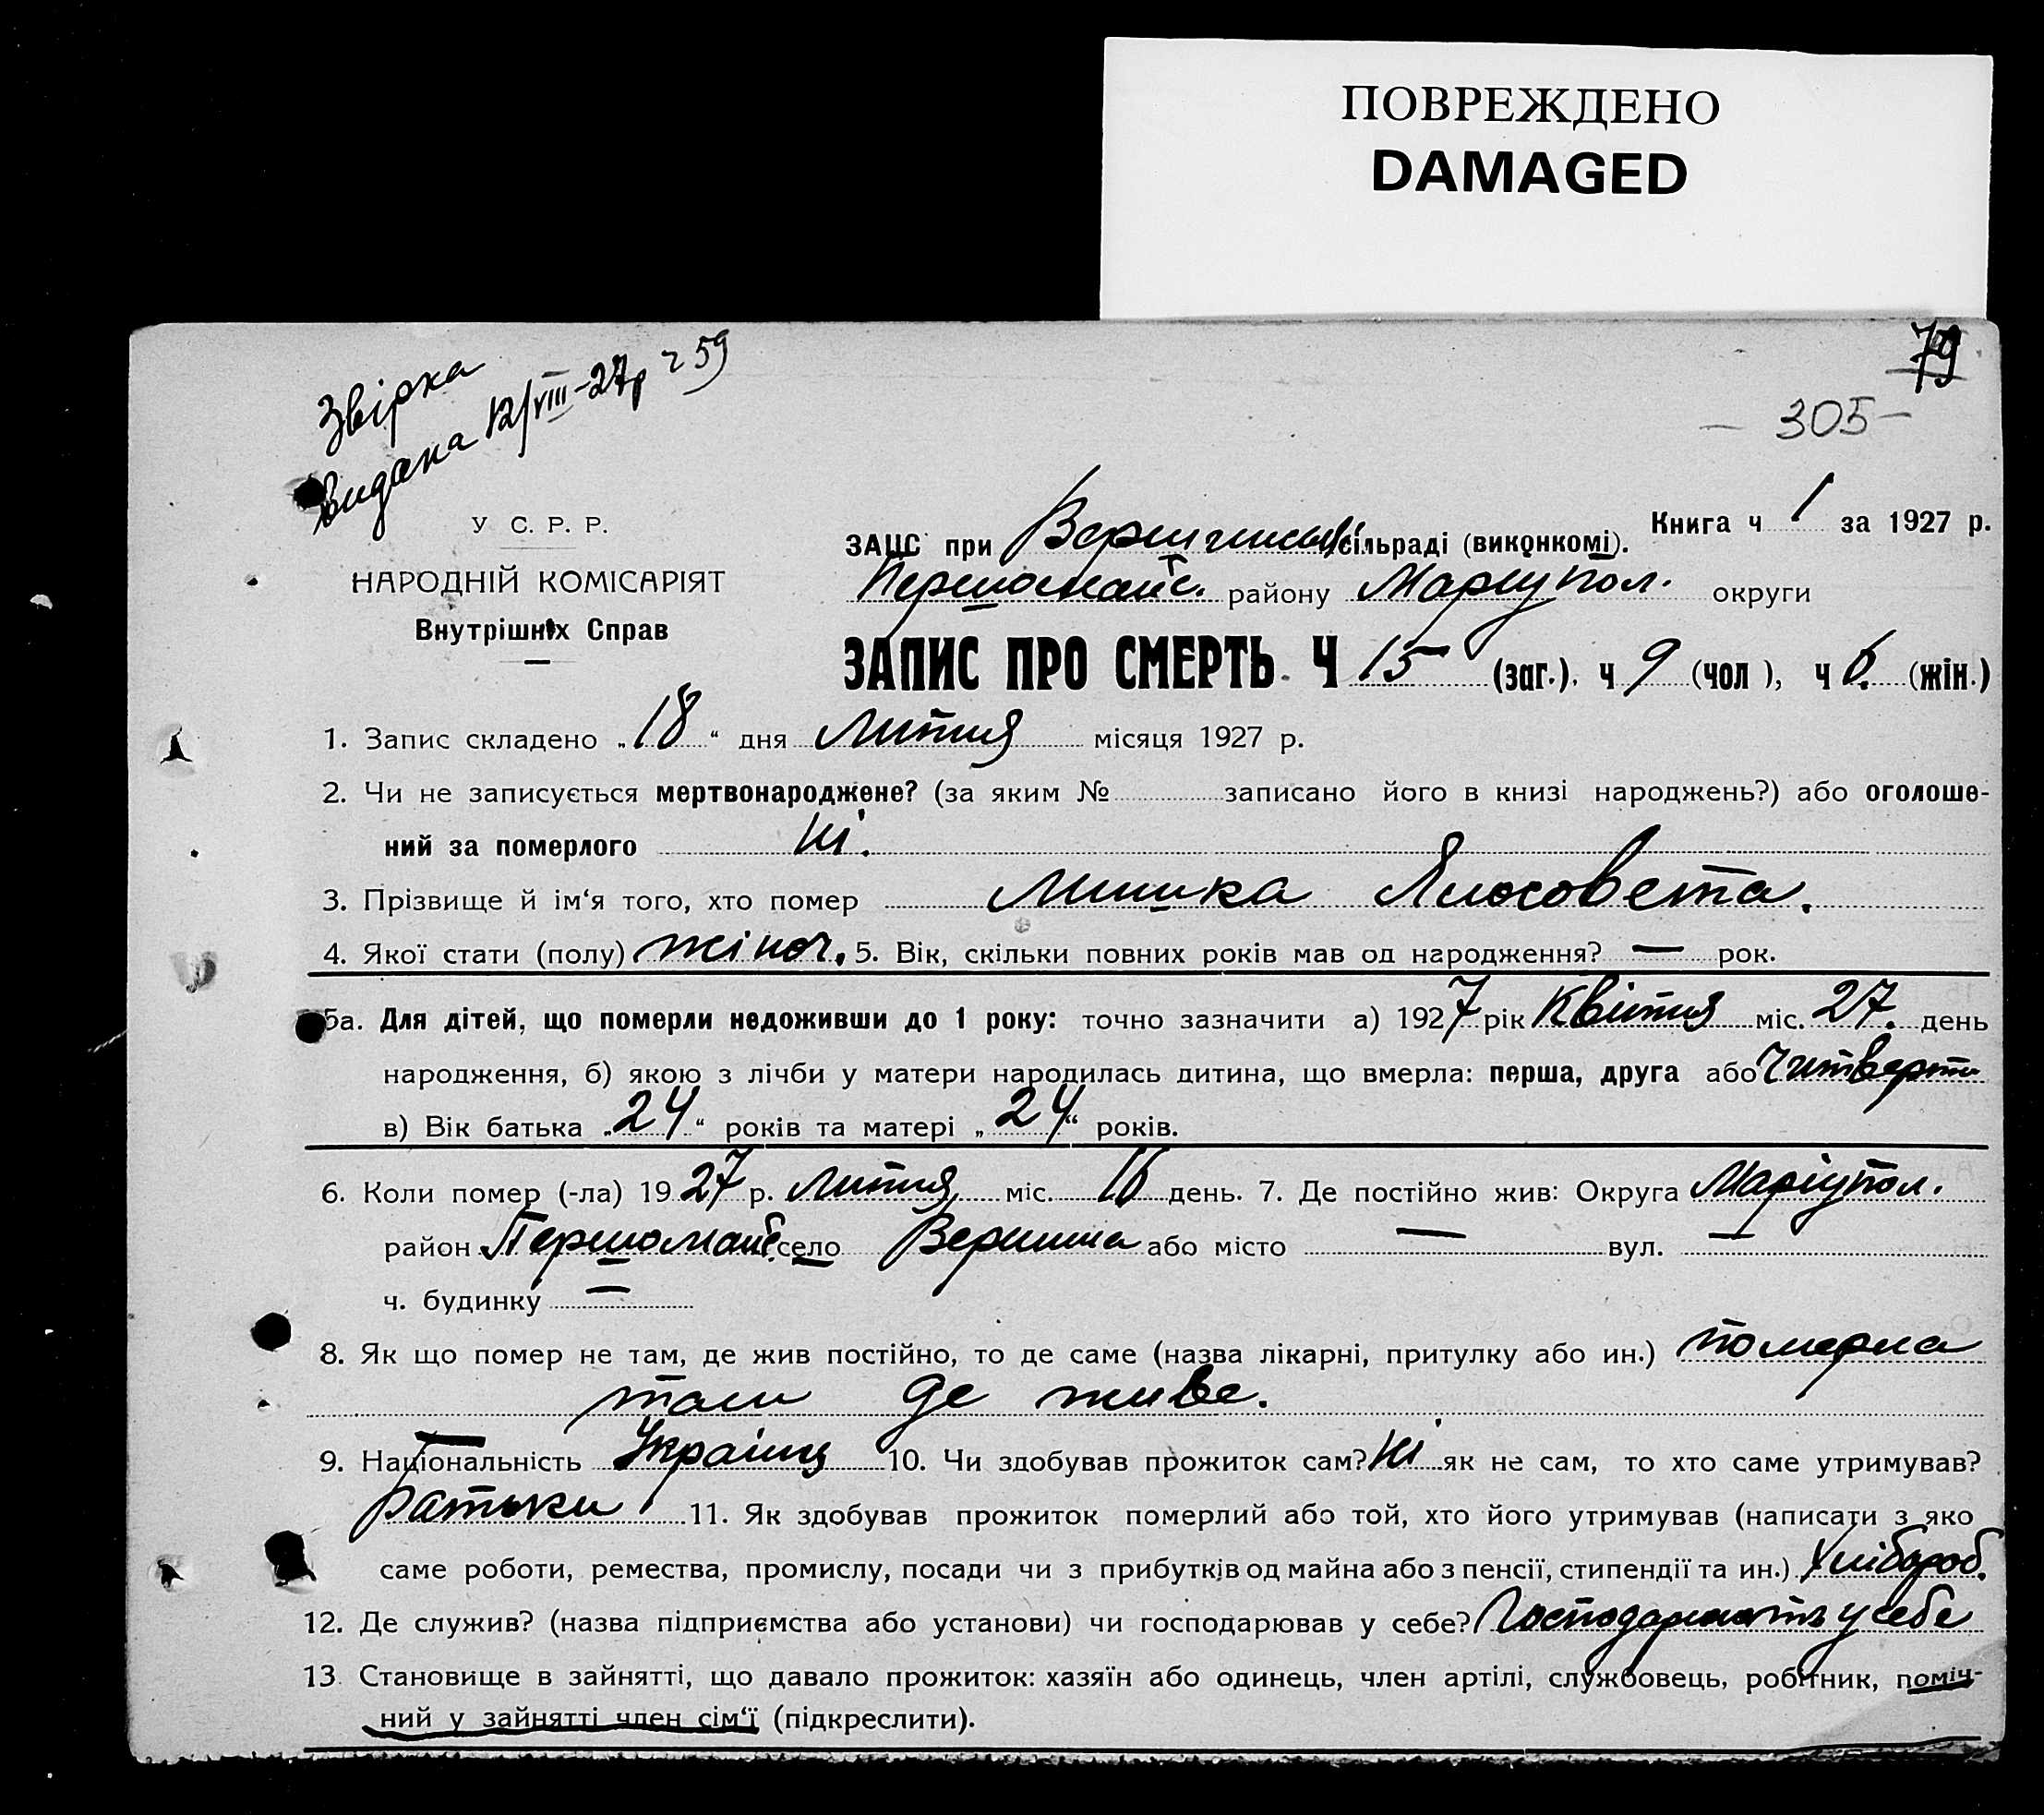 ПОВРЕЖДЕНО
DAMAGED
79
- 305 -
Звірка
видана 12/VIII-27р ч 59
У С. Р. Р.
НАРОДНІЙ КОМІСАРІЯТ
Внутрішніх Справ
Книга ч 1 за 1927 р.
ЗАЦС при сільраді (виконкомі).
Першомайс. району Маріупол. округи
ЗАПИС ПРО СМЕРТЬ Ч 15 (заг.). ч 9 (чол), ч 6. (жін.)
1. Запис складено „18“ дня Лютня місяця 1927 р.
2. Чи не записується мертвонароджене? (за яким № записано його в книзі народжень?) або оголоше-
ний за померлого Ні.
3. Прізвище й ім‘я того, хто помер Лисовета.
4. Якої стати (полу) жіноч. 5. Вік, скільки повних років мав од народження? — рок.
5а. Для дітей, що померли недоживши до 1 року: точно зазначити а) 1927 рік Квітня міс. 27. день
народження, б) якою з лічби у матери народилась дитина, що вмерла: перша, друга або Читверта
в) Вік батька „24“ років та матері „24“ років.
6. Коли помер (-ла) 1927 р. Лютня міс. 16 день. 7. Де постійно жив: Округа Маріупол.
район Першомайс. село Вершина або місто — вул. —
ч. будинку —
8. Як що помер не там, де жив постійно, то де саме (назва лікарні, притулку або ин.) померла
там де живе.
9. Національність 10. Чи здобував прожиток сам? Ні як не сам, то хто саме утримував?
батьки 11. Як здобував прожиток померлий або той, хто його утримував (написати з яко
саме роботи, ремества, промислу, посади чи з прибутків од майна або з пенсії, стипендії та ин.) Хлібороб.
12. Де служив? (назва підприємства або установи) чи господарював у себе? у себе
13. Становище в зайнятті, що давало прожиток: хазяїн або одинець, член артілі, службовець, робітник, поміч-
ний у зайнятті член сім‘ї (підкреслити).